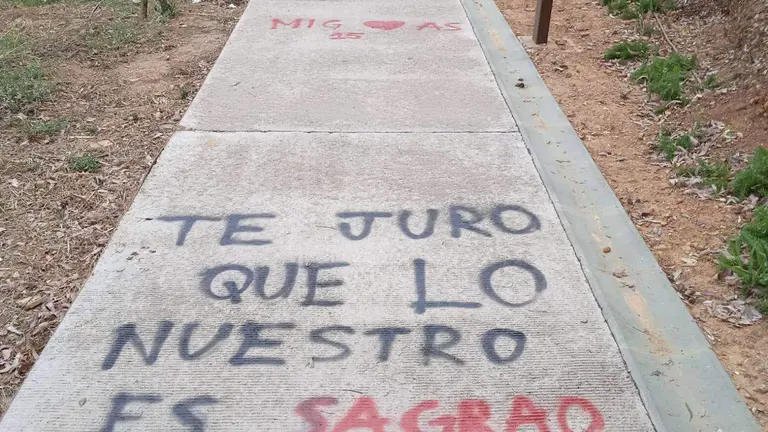 MIG ❤ AS
25
TE JURO
QUE LO
NUESTRO
ES SAGRADO